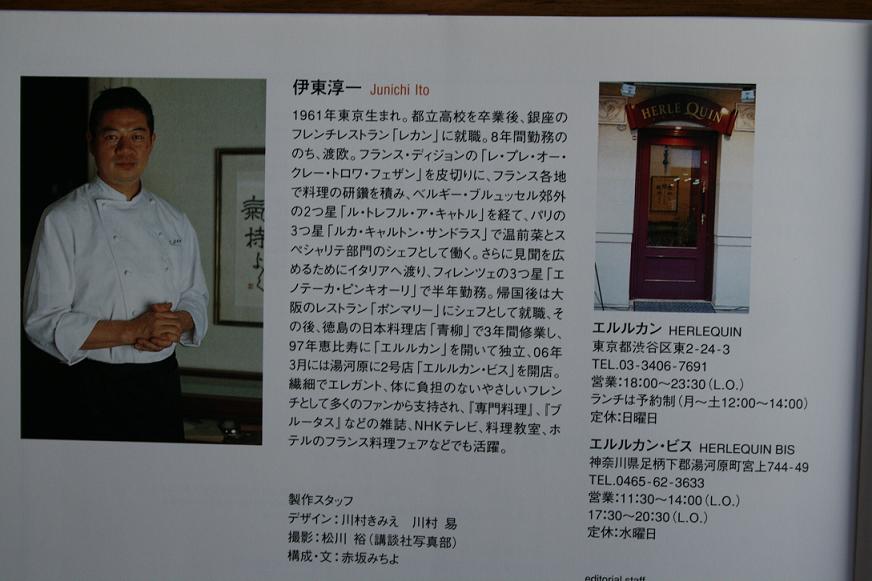 伊東淳一 Junichi Ito
1961年東京生まれ。都立高校を卒業後、銀座の
フレンチレストラン「レカン」に就職。8年間勤務の
のち、渡欧。フランス・ディジョンの「レ・プレ・オー・
クレー・トロワ・フェザン」を皮切りに、フランス各地
で料理の研鑽を積み、ベルギー・ブリュッセル郊外
の2つ星「ル・トレフル・ア・キャトル」を経て、パリの
3つ星「ルカ・キャルトン・サンドラス」で温前菜とス
ペシャリテ部門のシェフとして働く。さらに見聞を広
めるためにイタリアへ渡り、フィレンツェの3つ星「エ
ノテーカ・ピンキオーリ」で半年勤務。帰国後は大
阪のレストラン「ポンマリー」にシェフとして就職、そ
の後、徳島の日本料理店「青柳」で3年間修業し、
97年恵比寿に「エルルカン」を開いて独立、06年
3月には湯河原に2号店「エルルカン・ビス」を開店。
繊細でエレガント、体に負担のないやさしいフレン
チとして多くのファンから支持され、『専門料理』、『ブ
ルータス』などの雑誌、NHKテレビ、料理教室、ホ
テルのフランス料理フェアなどでも活躍。
製作スタッフ
デザイン：川村きみえ 川村 易
撮影：松川 裕（講談社写真部）
構成・文：赤坂みちよ
氣
持
よ
HERLE QUIN
エルルカン HERLEQUIN
東京都渋谷区東2-24-3
TEL.03-3406-7691
営業：18:00〜23:30（L.O.）
ランチは予約制（月〜土12:00〜14:00）
定休：日曜日
エルルカン・ビス HERLEQUIN BIS
神奈川県足柄下郡湯河原町宮上744-49
TEL.0465-62-3633
営業：11:30〜14:00（L.O.）
17:30〜20:30（L.O.）
定休：水曜日
editorial staff